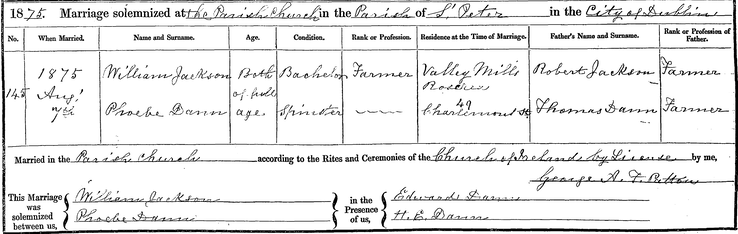 1875. Marriage solemnized at the Parish Church in the Parish of St Peter in the City of Dublin
No. When Married. Name and Surname. Age. Condition. Rank or Profession. Residence at the Time of Marriage. Father's Name and Surname. Rank or Profession of Father.
145 1875 Augt 7th William Jackson Both of full age Bachelor Farmer Valley Mills Roscrea Robert Jackson Farmer
Phoebe Dann Spinster 49 Charlemont St Thomas Dann Farmer
Married in the Parish Church according to the Rites and Ceremonies of the Church of Ireland by License by me,
George A. F.
This Marriage was solemnized between us, William Jackson
Phoebe Dann
in the Presence of us, Edward Dann
H. E. Dann